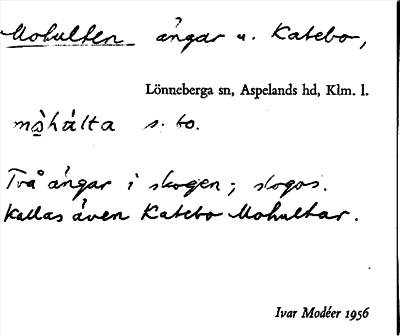 Mohulten ängar u. Katebo,
Lönneberga sn, Aspelands hd, Klm. l.
mo̱hùlta s. bo.
Två ängar i skogen; skogos.
Kallas även Katebo Mohultar.
Ivar Modéer 1956